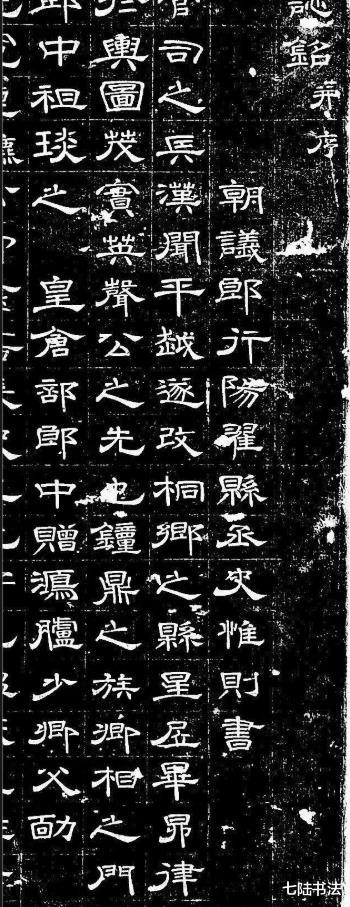 誌銘并序
朝議郎行陽翟縣丞史惟則書
司之兵漢聞平越遂改桐鄉之縣星居畢昴律
輿圖茂實英聲公之先也鐘鼎之族卿相之門
郎中祖琰之皇倉部郎中贈鴻臚少卿父勔
七陆书法